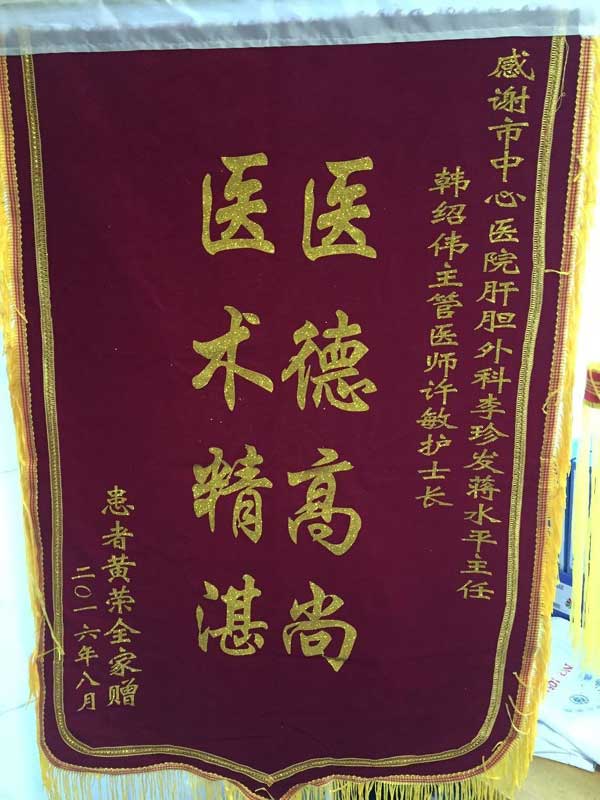 感谢市中心医院肝胆外科李珍发蒋水平主任
韩绍伟主管医师许敏护士长
医德高尚
医术精湛
患者黄荣全家赠
二〇一六年八月